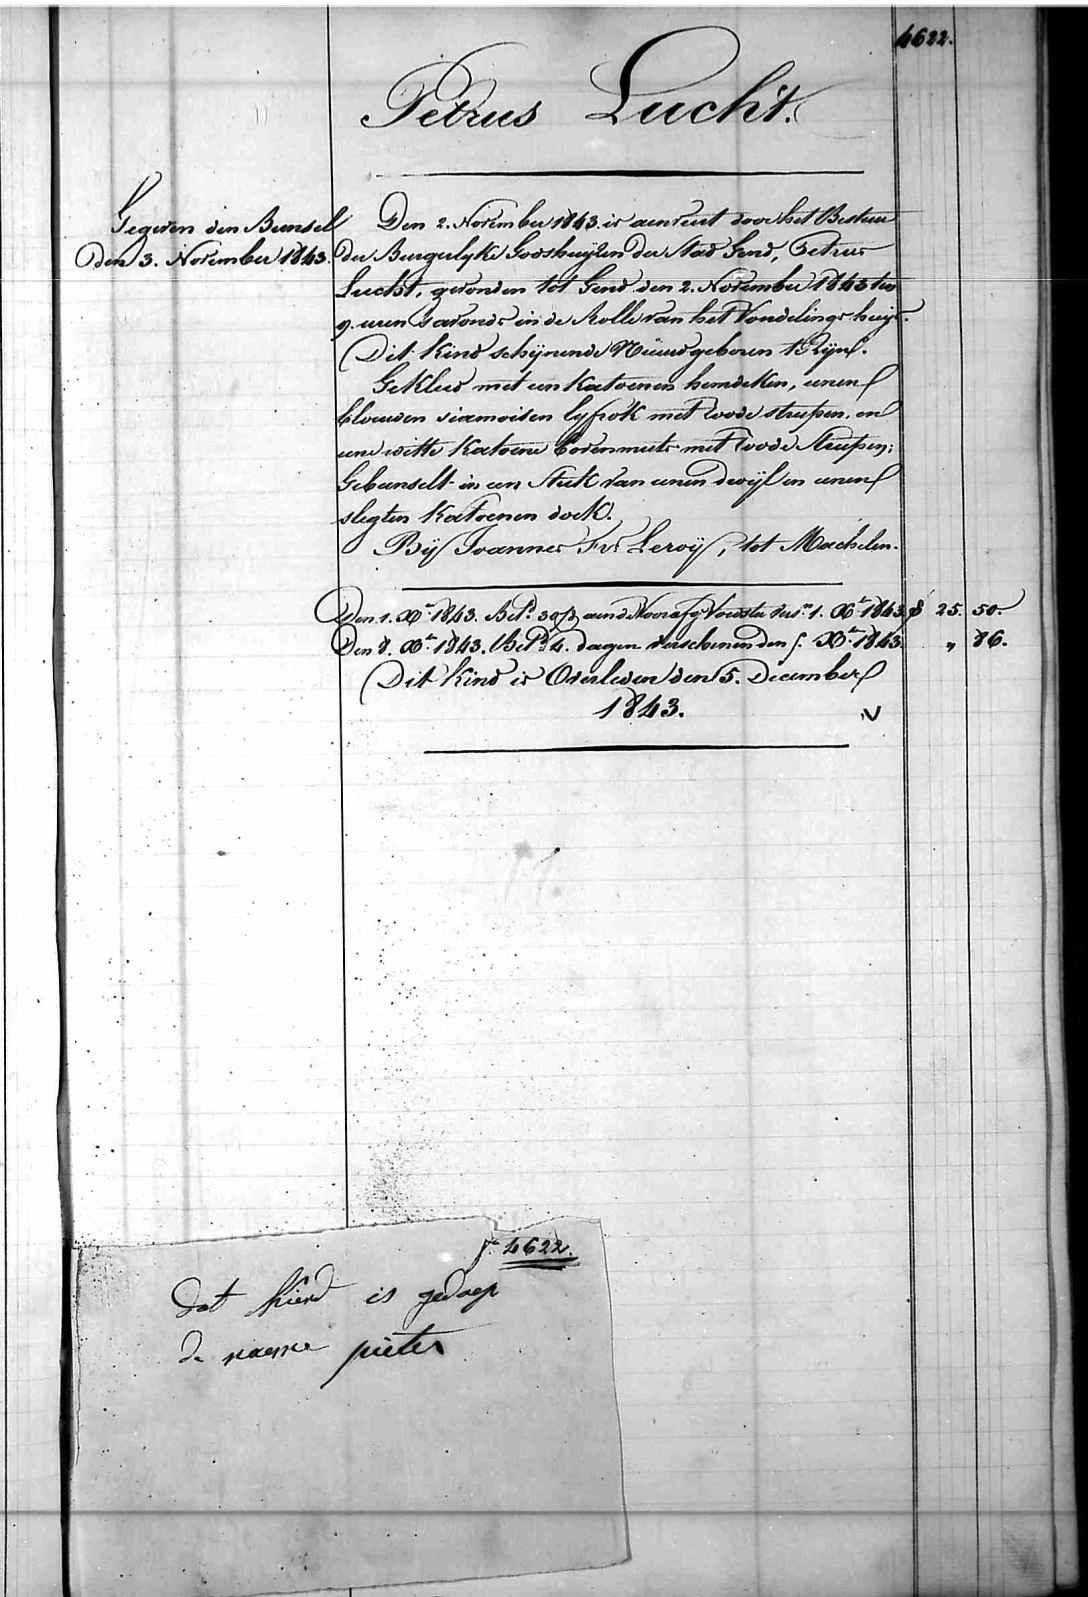 4622.
Petrus Lucht.
Gegeven den Bunsel
den 3. November 1843.
Den 2. November 1843 is aenveert door het Bestuur
der Burgerlyke Godshuijzen der Stad Gend, Petrus
Lucht, gevonden tot Gend den 2. November 1843 ten
9. uren s'avonds in de Rolle van het Vondelingshuijs.
Dit kind schijnende Nieuwgeboren te zijn.
Gekleed met een katoenen hemdeken, eenen
blauwen siamoisen lyfrok met roode streepen, en
eene witte katoene bovenmuts met roode streepen;
Gebunselt in een stuk van eenen dwijl en eenen
slegten katoenen doek.
Bij Joannes Frs Leroij, tot Machelen.
Den 1. Xbr 1843. Bet.d aen de Voedster 1. Xbr 1843 f 25. 50.
Den 8. Xbr 1843. Bet.d 4. dagen verschenen den 5. Xbr 1843. „ 86.
Dit kind is Overleden den 5. December
1843.
f.o 4622.
dat kiend is gedoep
de naeme pieter